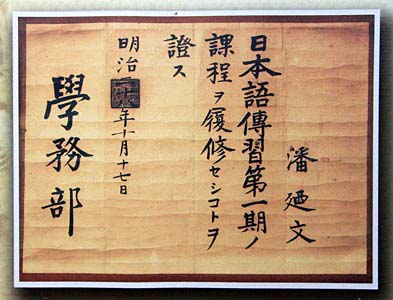 潘廼文
日本語傳習第一期ノ
課程ヲ履修セシコトヲ
證ス
明治年十月十七日
學務部